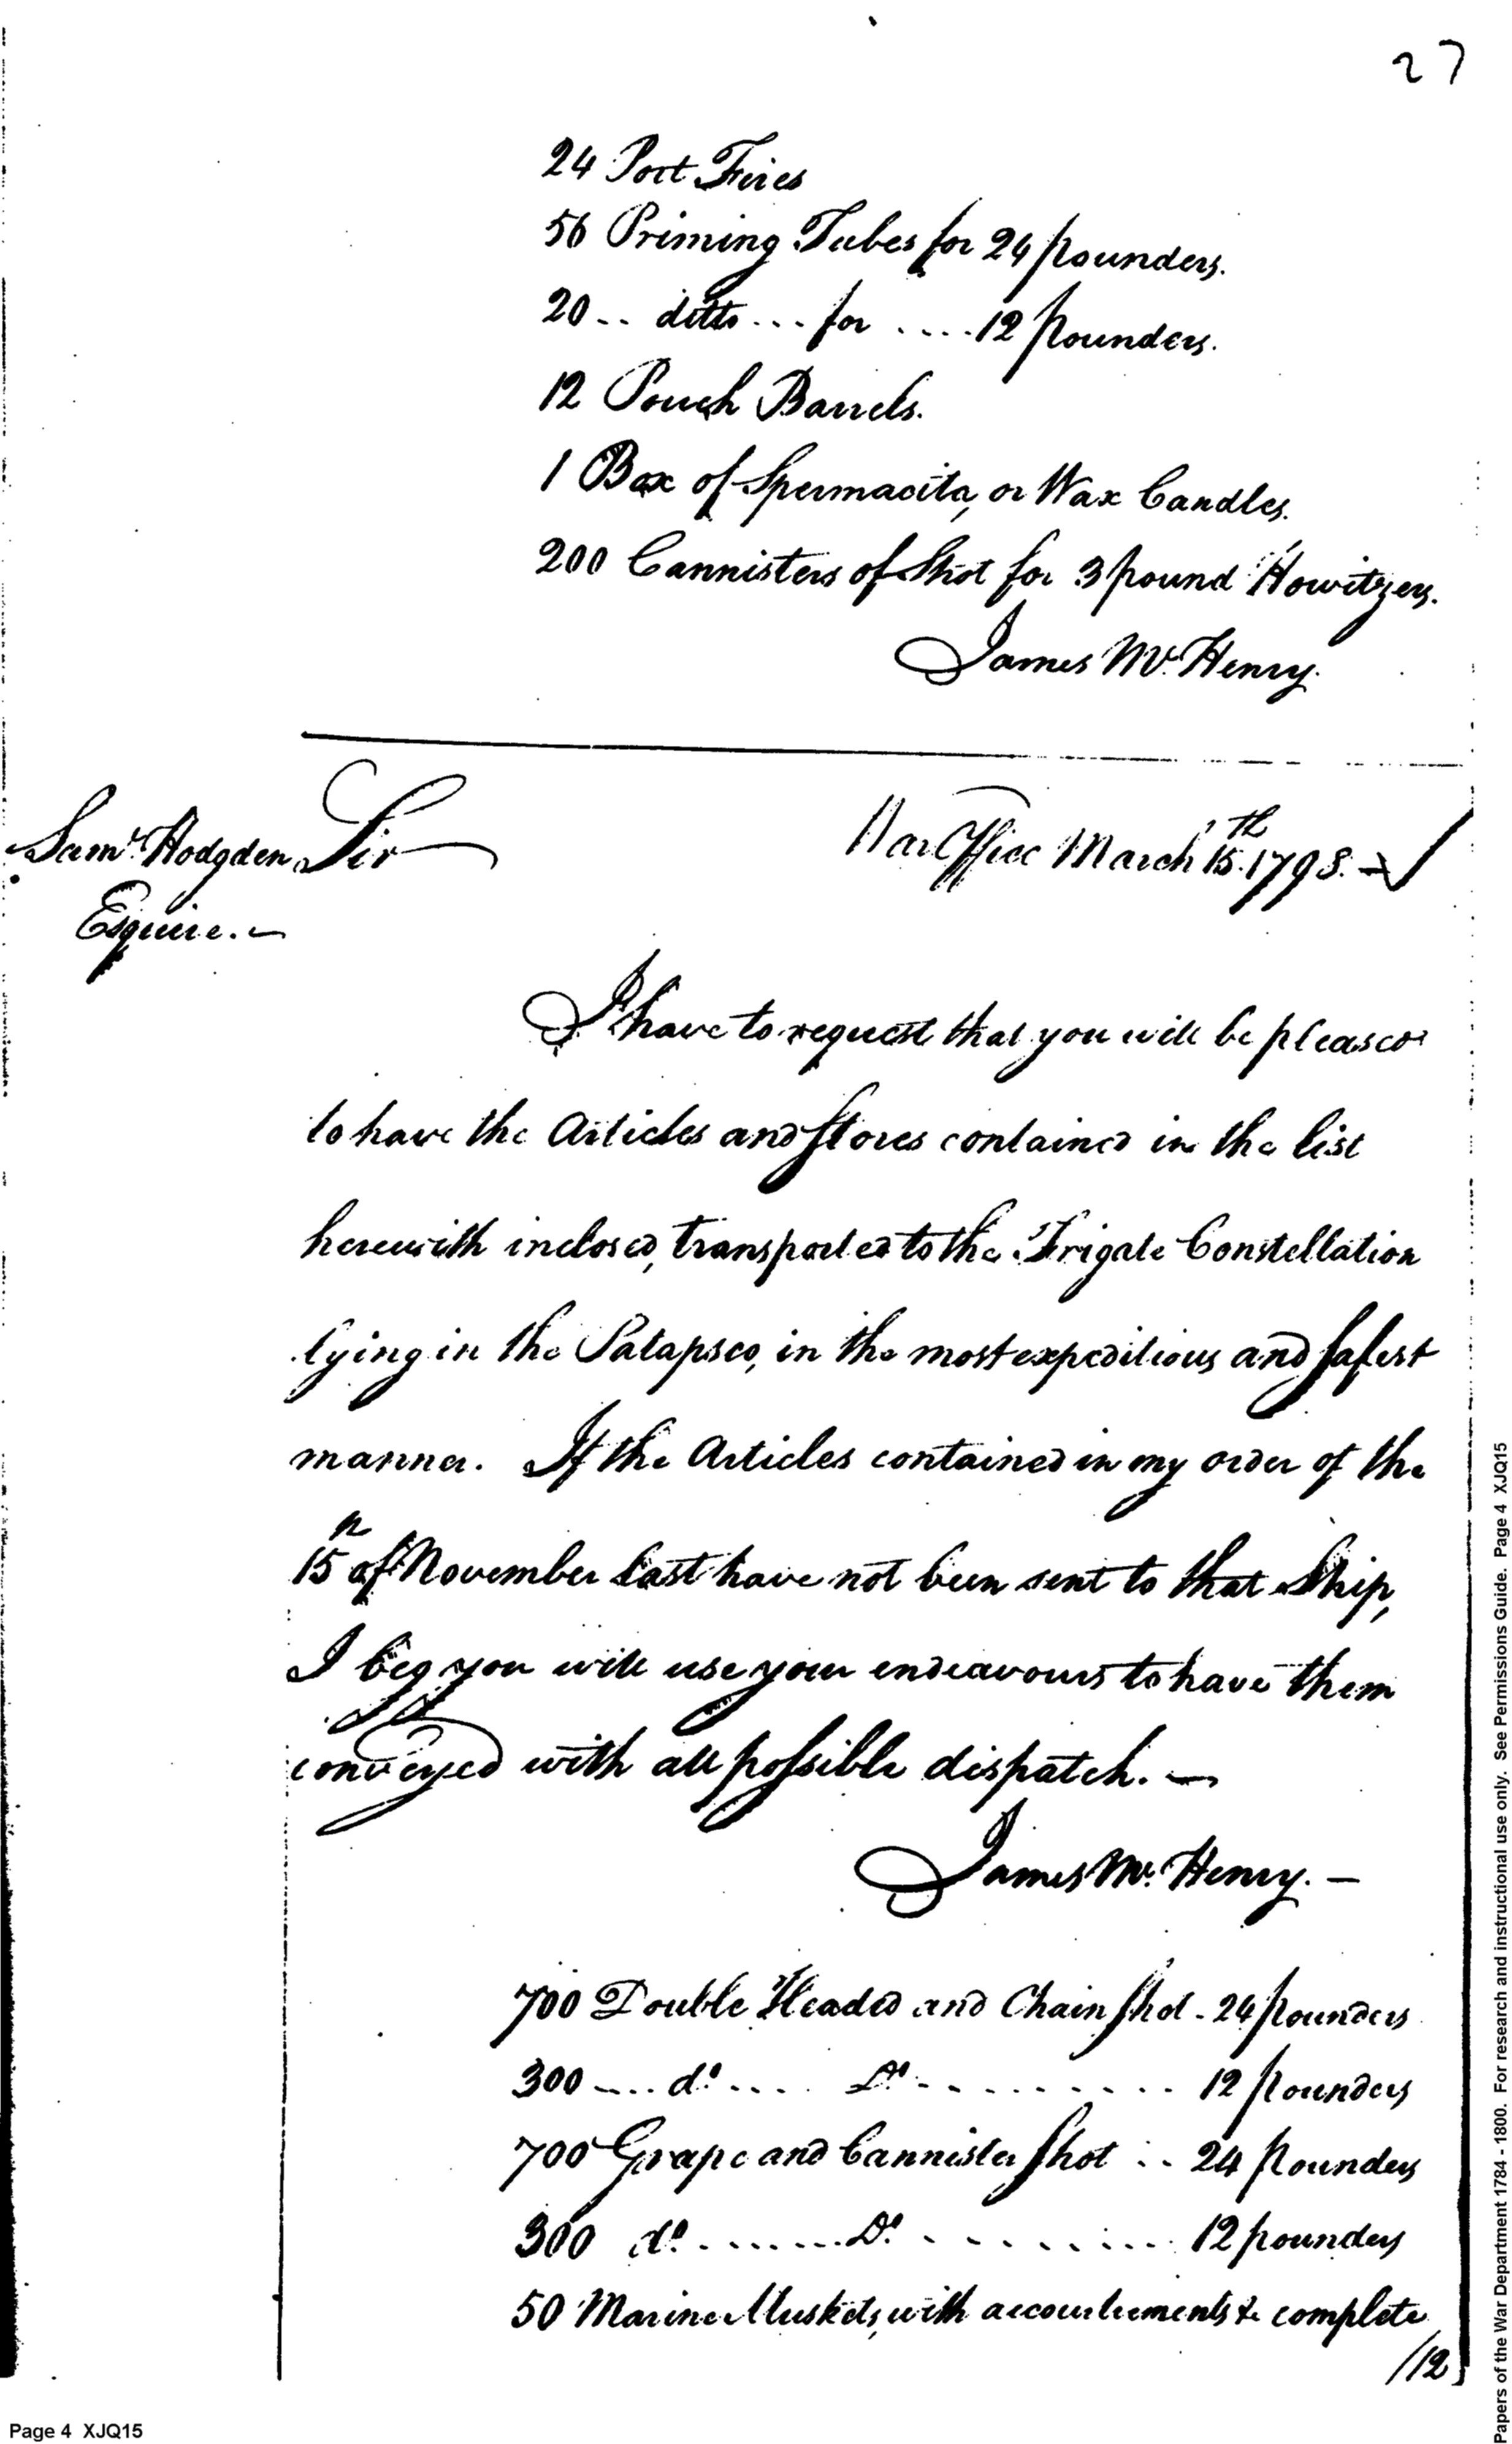 27
24 Port Fires
56 Priming Tubes for 24 pounders.
20 .. ditto ... for .... 12 pounders.
12 Pouch Barrels.
1 Box of Spermacita, or Wax Candles.
200 Cannisters of Shot for 3 pound Howitzers.
James McHenry.
War Office March 15th. 1798.
Saml Hodgden Sir
Esquire. -
I have to request that you will be pleased
to have the Articles and Stores contained in the list
herewith inclosed, transported to the Frigate Constellation
lying in the Patapsco, in the most expeditious and safest
manner. If the Articles contained in my order of the
15th of November last have not been sent to that Ship,
I beg you will use your endeavours to have them
conveyed with all possible dispatch. —
James McHenry. —
700 Double Headed and Chain Shot - 24 pounders
300 .... do .... Do. .......... 12 pounders
700 Grape and Cannister Shot .. 24 pounders
300 do. ....... Do. .......... 12 pounders
50 Marine Muskets, with accoutrements & complete
/12
Page 4 XJQ15
Papers of the War Department 1784 - 1800. For research and instructional use only. See Permissions Guide. Page 4 XJQ15